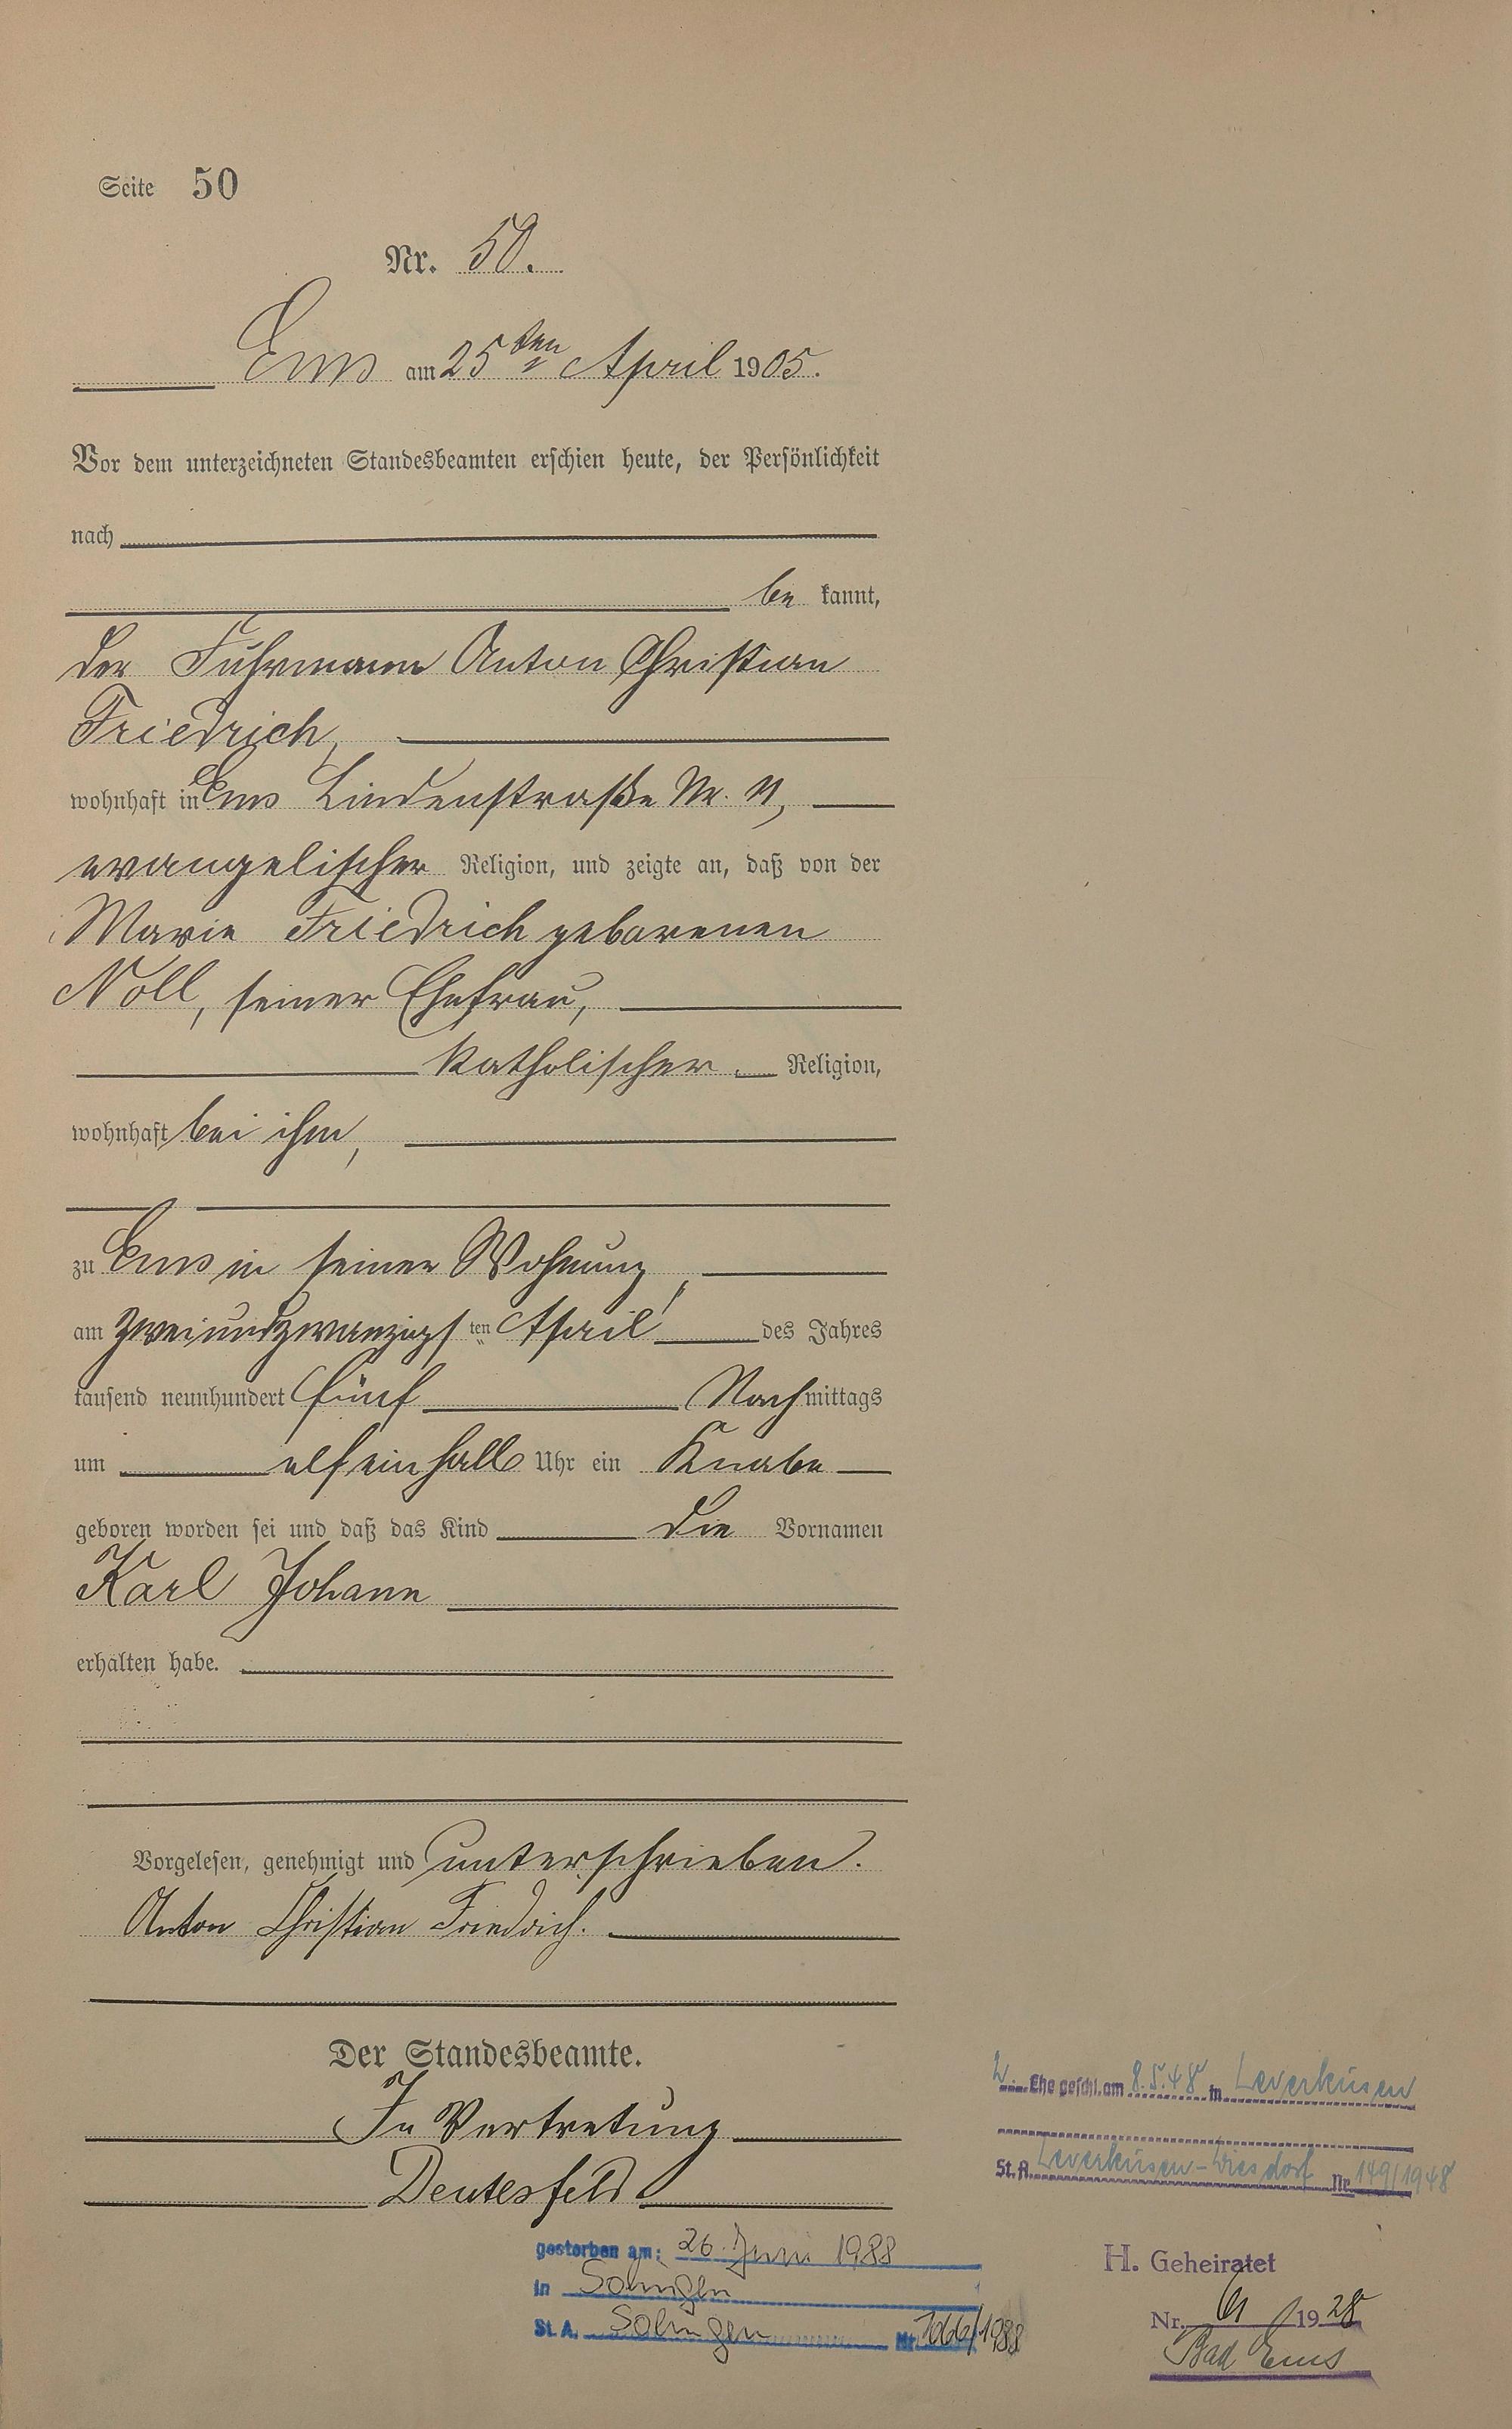 Seite 50
Nr. 50.
Ems am 25ten April 1905.
Vor dem unterzeichneten Standesbeamten erschien heute, der Persönlichkeit
nach
be kannt,
der Fuhrmann Anton Christian
Friedrich,
wohnhaft in Ems Lindenstraße Nr. 11,
evangelischer Religion, und zeigte an, daß von der
Marie Friedrich geborenen
Noll, seiner Ehefrau,
katholischer Religion,
wohnhaft bei ihm,
zu Ems in seiner Wohnung,
am zweiundzwanzigsten April des Jahres
tausend neunhundert fünf Nachmittags
um elfeinhalb Uhr ein Knabe
geboren worden sei und daß das Kind die Vornamen
Karl Johann
erhalten habe.
Vorgelesen, genehmigt und unterschrieben.
Anton Christian Friedrich.
Der Standesbeamte.
In Vertretung
Deutesfeld
gestorben am: 26. Juni 1988
in Solingen
St. A. Solingen Nr. 1066/1988
2. Ehe geschl. am 8.5.48 in Leverkusen
St. A. Leverkusen-Wiesdorf Nr. 149/1948
H. Geheiratet
Nr. 61 1928
Bad Ems